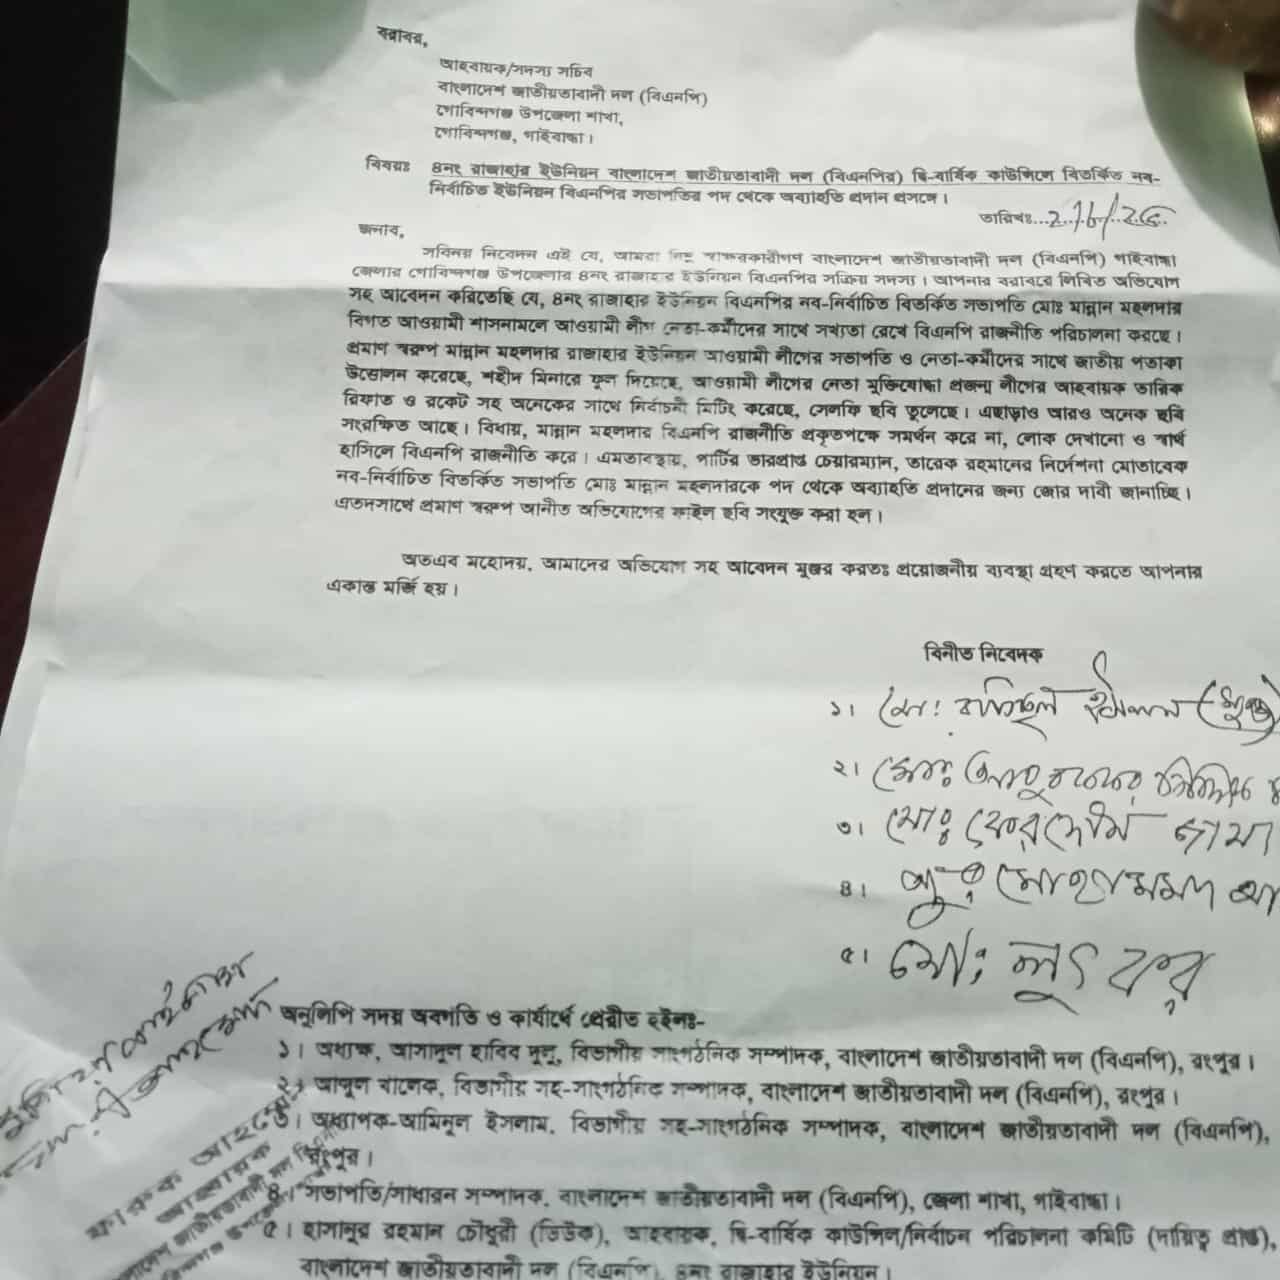 বরাবর,
আহবায়ক/সদস্য সচিব
বাংলাদেশ জাতীয়তাবাদী দল (বিএনপি)
গোবিন্দগঞ্জ উপজেলা শাখা,
গোবিন্দগঞ্জ, গাইবান্ধা।
বিষয়ঃ ৪নং রাজাহার ইউনিয়ন বাংলাদেশ জাতীয়তাবাদী দল (বিএনপির) দ্বি-বার্ষিক কাউন্সিলে বিতর্কিত নব-
নির্বাচিত ইউনিয়ন বিএনপির সভাপতির পদ থেকে অব্যাহতি প্রদান প্রসঙ্গে।
তারিখঃ
জনাব,
সবিনয় নিবেদন এই যে, আমরা নিম্ন স্বাক্ষরকারীগণ বাংলাদেশ জাতীয়তাবাদী দল (বিএনপি) গাইবান্ধা
জেলার গোবিন্দগঞ্জ উপজেলার ৪নং রাজাহার ইউনিয়ন বিএনপির সক্রিয় সদস্য। আপনার বরাবরে লিখিত অভিযোগ
সহ আবেদন করিতেছি যে, ৪নং রাজাহার ইউনিয়ন বিএনপির নব-নির্বাচিত বিতর্কিত সভাপতি মোঃ মান্নান মহলদার
বিগত আওয়ামী শাসনামলে আওয়ামী লীগ নেতা-কর্মীদের সাথে সখ্যতা রেখে বিএনপি রাজনীতি পরিচালনা করছে।
প্রমাণ স্বরুপ মান্নান মহলদার রাজাহার ইউনিয়ন আওয়ামী লীগের সভাপতি ও নেতা-কর্মীদের সাথে জাতীয় পতাকা
উত্তোলন করেছে, শহীদ মিনারে ফুল দিয়েছে, আওয়ামী লীগের নেতা মুক্তিযোদ্ধা প্রজন্ম লীগের আহবায়ক তারিক
রিফাত ও রকেট সহ অনেকের সাথে নির্বাচনী মিটিং করেছে, সেলফি ছবি তুলেছে। এছাড়াও আরও অনেক ছবি
সংরক্ষিত আছে। বিধায়, মান্নান মহলদার বিএনপি রাজনীতি প্রকৃতপক্ষে সমর্থন করে না, লোক দেখানো ও স্বার্থ
হাসিলে বিএনপি রাজনীতি করে। এমতাবস্থায়, পার্টির ভারপ্রাপ্ত চেয়ারম্যান, তারেক রহমানের নির্দেশনা মোতাবেক
নব-নির্বাচিত বিতর্কিত সভাপতি মোঃ মান্নান মহলদারকে পদ থেকে অব্যাহতি প্রদানের জন্য জোর দাবী জানাচ্ছি।
এতদসাথে প্রমাণ স্বরুপ আনীত অভিযোগের ফাইল ছবি সংযুক্ত করা হল।
অতএব মহোদয়, আমাদের অভিযোগ সহ আবেদন মুঞ্জুর করতঃ প্রয়োজনীয় ব্যবস্থা গ্রহণ করতে আপনার
একান্ত মর্জি হয়।
বিনীত নিবেদক
১। মো:
২। মোঃ
৩। মোঃ ফেরদৌস
৪।
৫। মোঃ লুৎফর
অনুলিপি সদয় অবগতি ও কার্যার্থে প্রেরীত হইলঃ-
১। অধ্যক্ষ, আসাদুল হাবিব দুলু, বিভাগীয় সাংগঠনিক সম্পাদক, বাংলাদেশ জাতীয়তাবাদী দল (বিএনপি), রংপুর।
২। আব্দুল খালেক, বিভাগীয় সহ-সাংগঠনিক সম্পাদক, বাংলাদেশ জাতীয়তাবাদী দল (বিএনপি), রংপুর।
৩। অধ্যাপক-আমিনুল ইসলাম, বিভাগীয় সহ-সাংগঠনিক সম্পাদক, বাংলাদেশ জাতীয়তাবাদী দল (বিএনপি),
রংপুর।
৪। সভাপতি/সাধারন সম্পাদক, বাংলাদেশ জাতীয়তাবাদী দল (বিএনপি), জেলা শাখা, গাইবান্ধা।
৫। হাসানুর রহমান চৌধুরী (ডিউক), আহবায়ক, দ্বি-বার্ষিক কাউন্সিল/নির্বাচন পরিচালনা কমিটি (দায়িত্ব প্রাপ্ত),
বাংলাদেশ জাতীয়তাবাদী দল (বিএনপি), ৪নং রাজাহার ইউনিয়ন।
ফারুক আহম্মেদ
আহবায়ক
জাতীয়তাবাদী দল